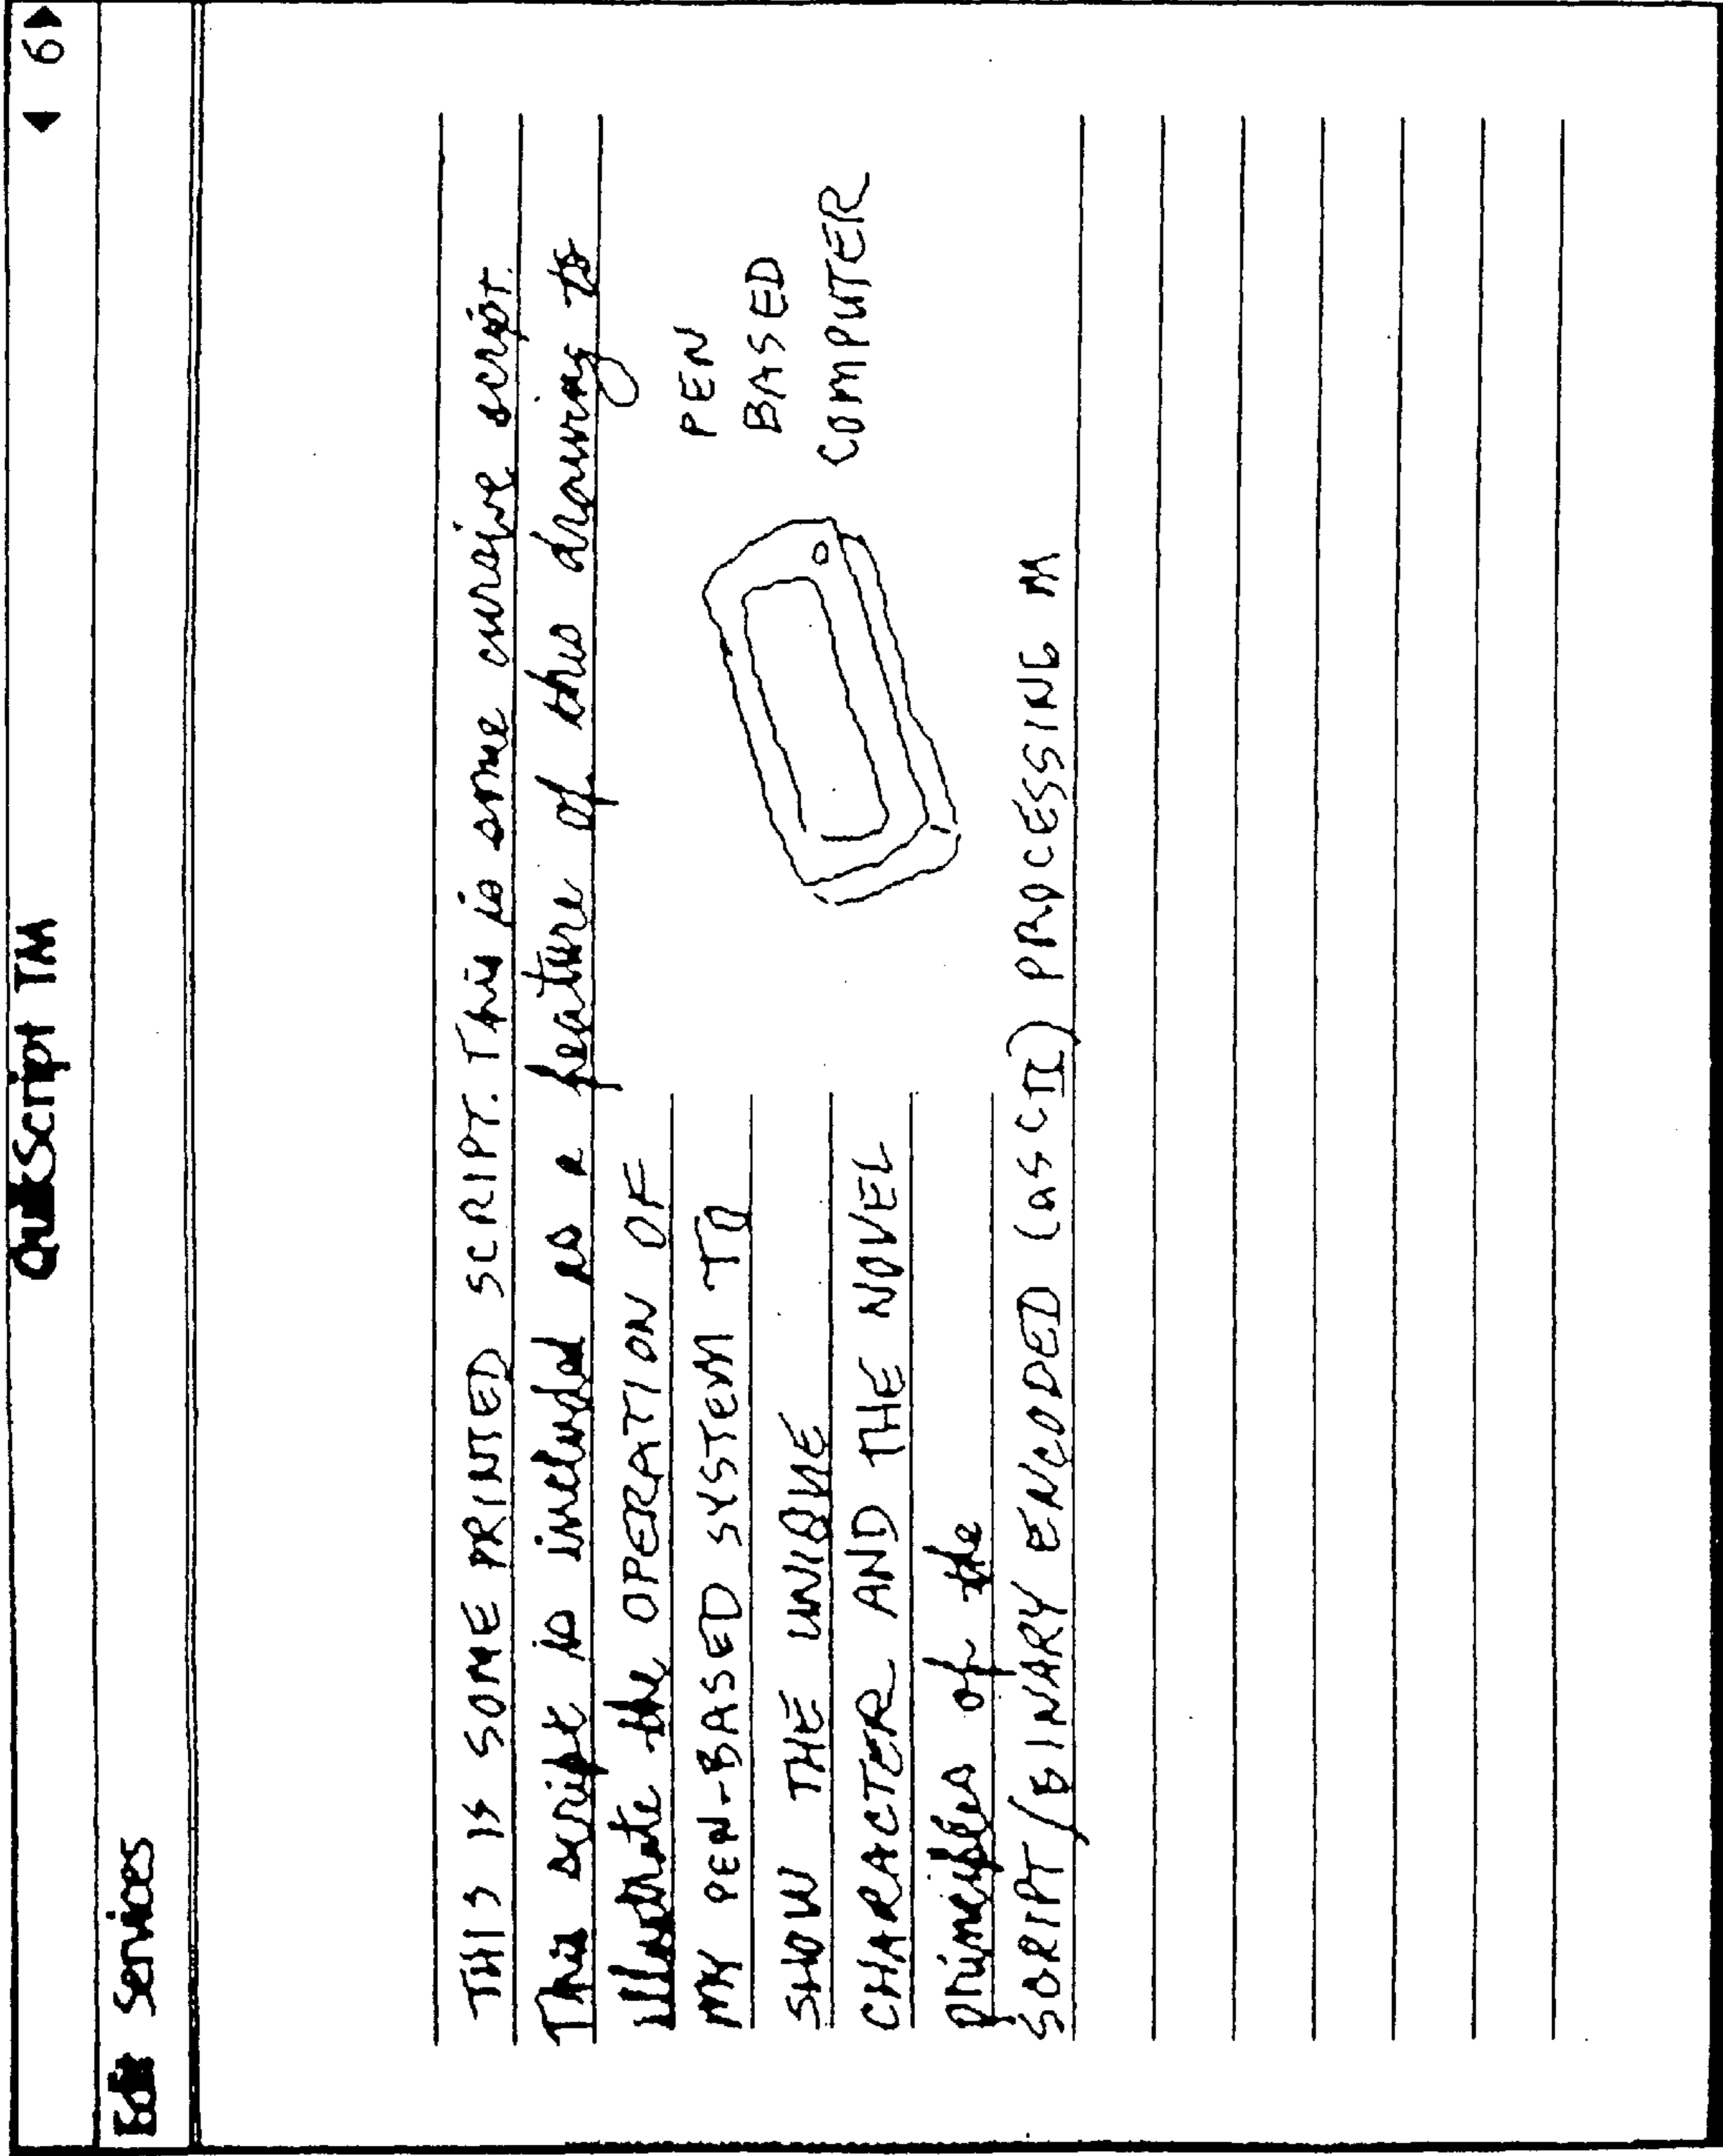 QuikScript TM ◀ 6 ▶
Edit Services
THIS IS SOME PRINTED SCRIPT. This is some cursive script.
This script is included as a feature of this drawing to
illustrate the OPERATION OF
MY PEN-BASED SYSTEM TO
SHOW THE UNIQUE
CHARACTER AND THE NOVEL
principles of the
SCRIPT/BINARY ENCODED (ASCII) PROCESSING M
PEN
BASED
COMPUTER